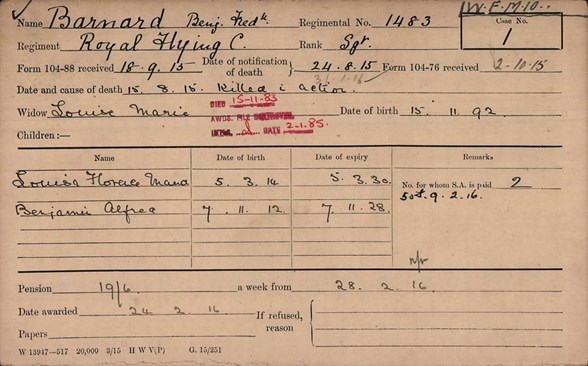 W.F.M.10.
Name Barnard Benj. Fredk. Regimental No. 1483 Case No. 1
Regiment Royal Flying C. Rank Sgt.
Form 104-88 received 18-9.15 Date of notification of death 24.8.15 Form 104-76 received 2-10-15
31-1-16
Date and cause of death 15. 8. 15. Killed i action.
DIED 15-11-83
Widow Louise Marie Date of birth 15. 11. 92
AWDS. FILE
DATE 2-1-85.
Children:—
Name Date of birth Date of expiry Remarks
Louisa Florence Maud 5. 3. 14 5. 3. 30. No. for whom S.A. is paid 2
9. 2. 16.
Benjamin Alfred 7. 11. 12. 7. 11. 28.
Pension 19/6 a week from 28. 2. 16.
Date awarded 24 2. 16 If refused, reason
Papers
W 13947—517 20,000 3/15 H W V(P) G. 15/251